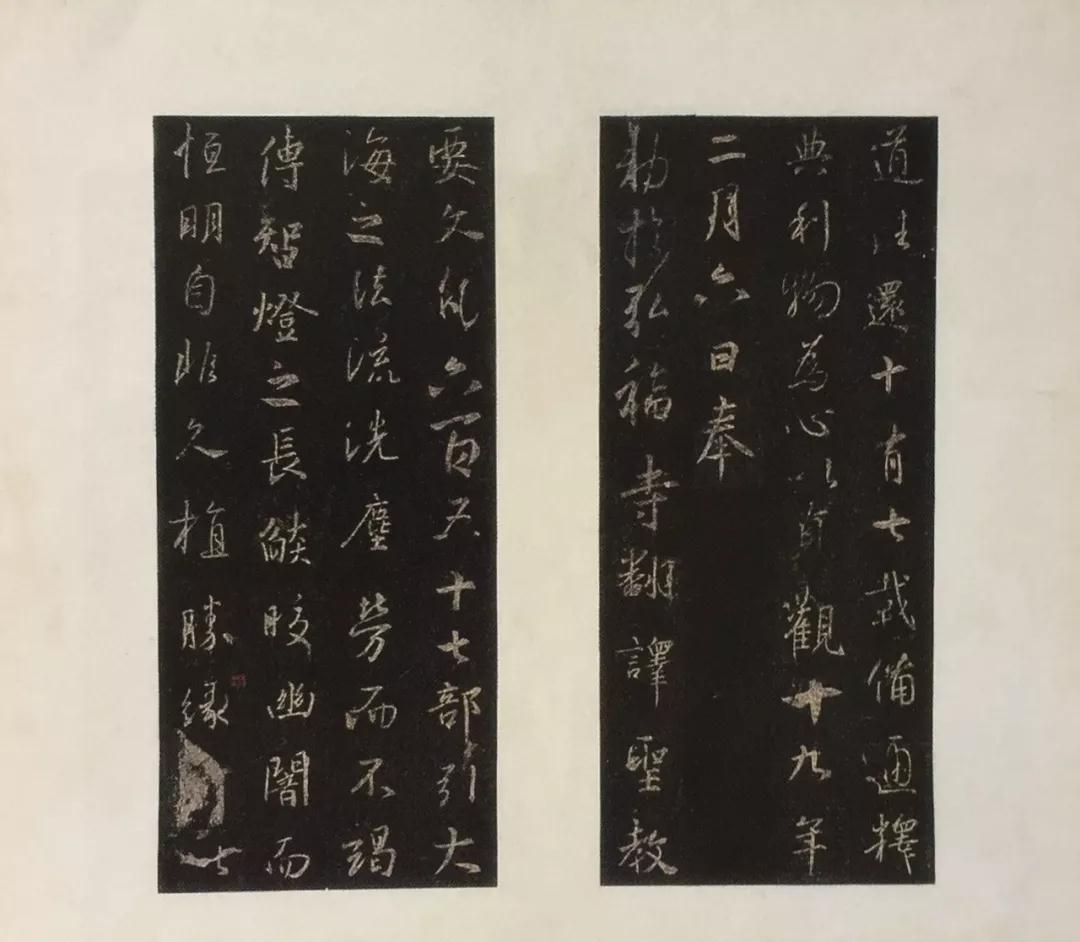 道往還十有七載備通釋
典利物為心以貞觀十九年
二月六日奉
勅於弘福寺翻譯聖教
要文凡六百五十七部引大
海之法流洗塵勞而不竭
傳智燈之長燄皎幽闇而
恒明自非久植勝緣